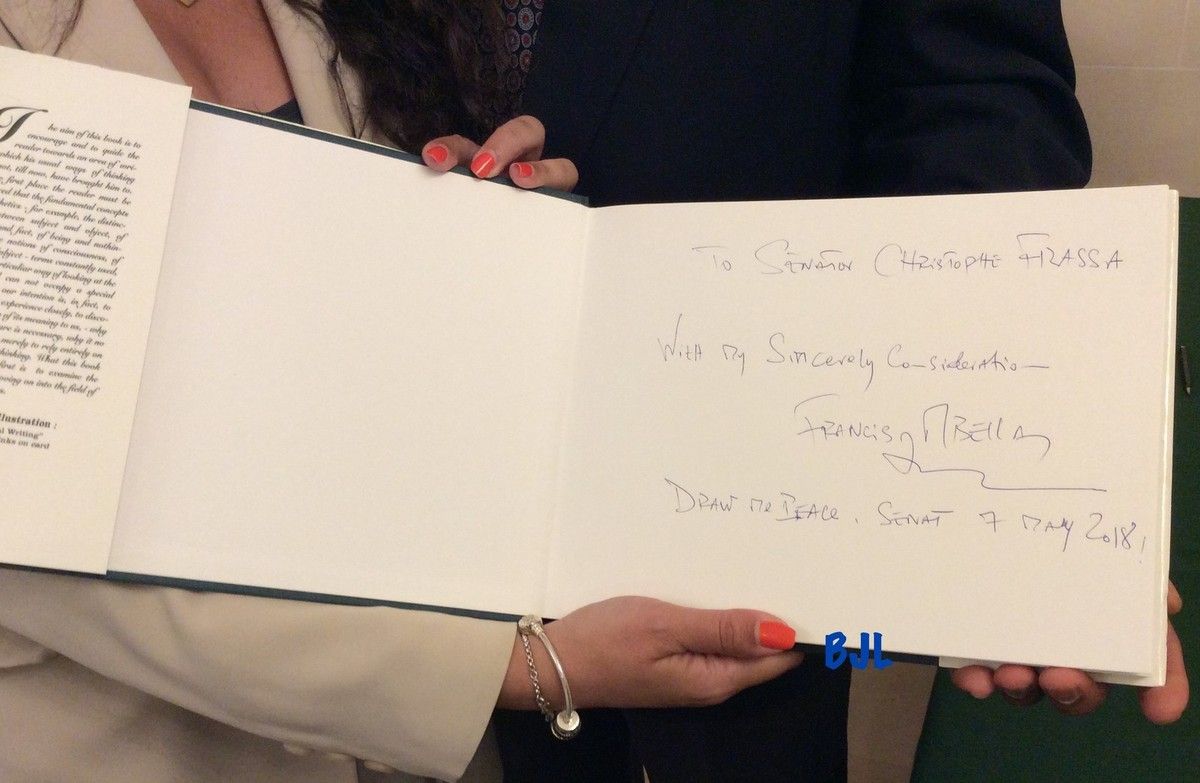 The aim of this book is to
encourage and to guide the
reader towards an area of
which his usual ways of thinking
not, till now, have brought him to.
first place the reader must be
that the fundamental concepts
for example, the distinc-
between subject and object, of
and fact, of being and nothin-
notions of consciousness, of
object - terms constantly used,
particular way of looking at the
can not occupy a special
our intention is, in fact, to
experience closely, to disco-
of its meaning to us, - why
is necessary, why it no
merely to rely entirely on
thinking. What this book
first is to examine the
moving on into the field of
llustration :
Writing"
inks on card
To Senator Christophe Frassa
With my Sincerely Consideration
Francis Mbella
Draw me Peace. Senat 7 May 2018!
BJL